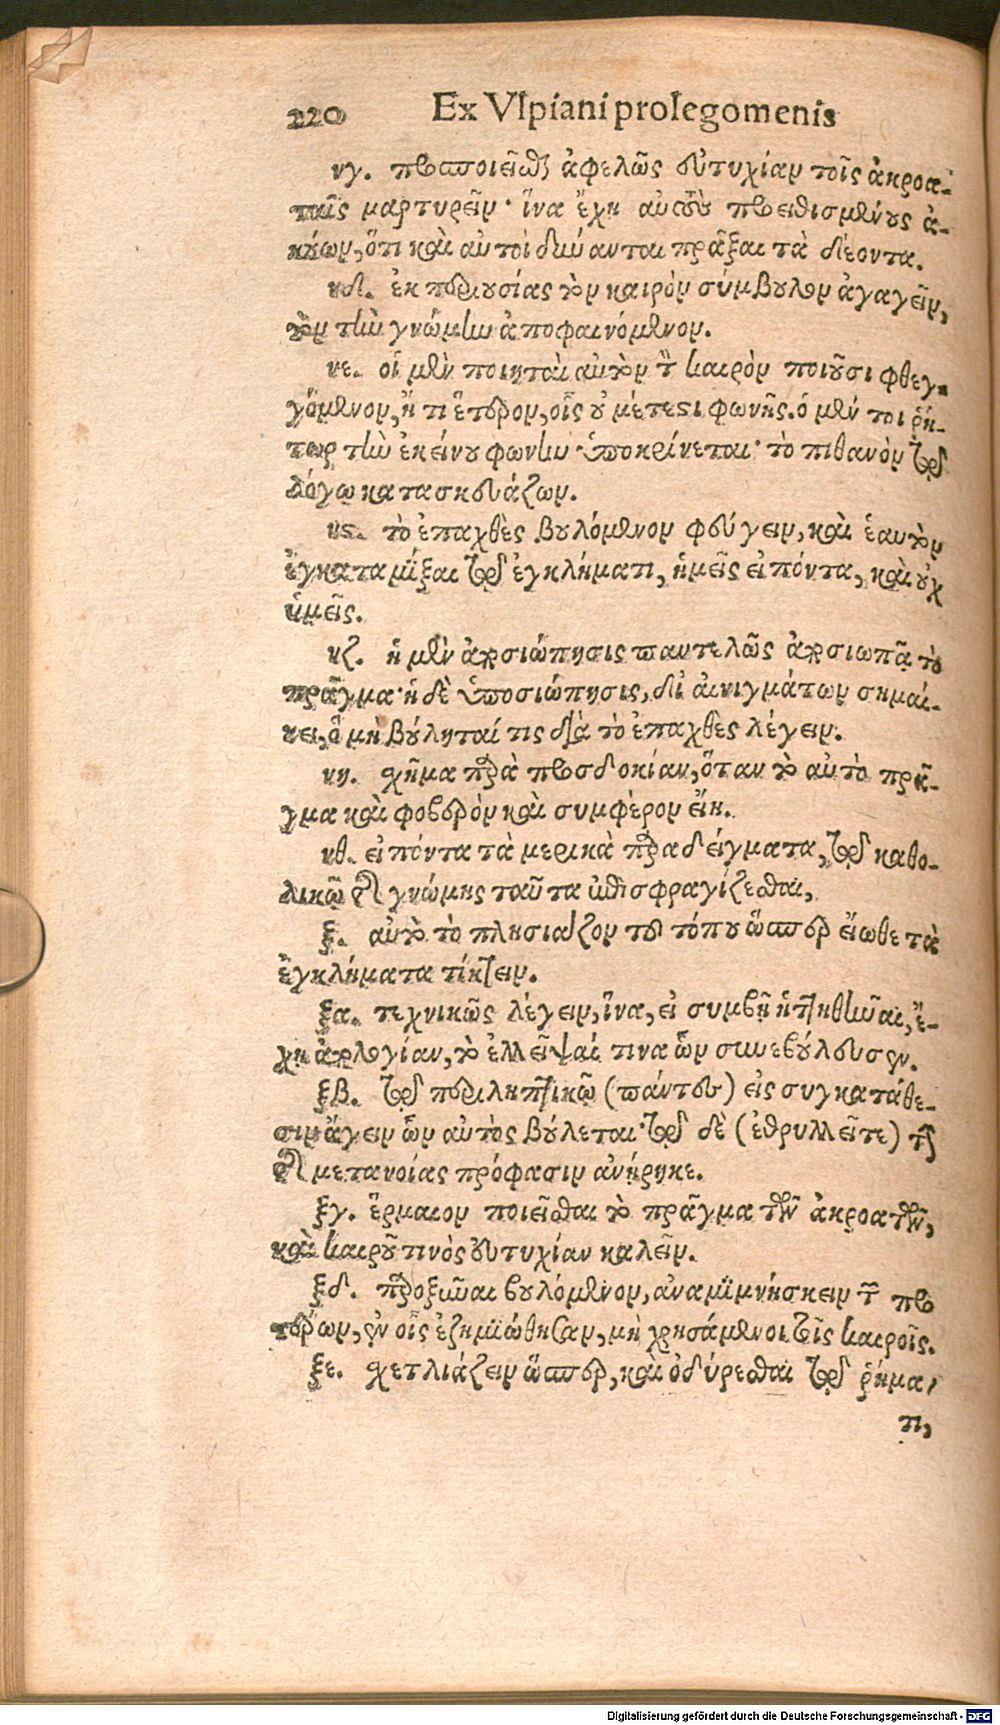 220 Ex Vlpiani prolegomenis
νγ. προσποιεῖσθαι ἀφελῶς εὐτυχίαν τοῖς ἀκροα-
ταῖς μαρτυρεῖν· ἵνα ἔχῃ αὐτοὺς προειθισμένους ἀ-
κούων, ὅτι καὶ αὐτοὶ δύνανται πρᾶξαι τὰ δέοντα.
νδ. ἐκ περιουσίας τὸν καιρὸν σύμβουλον ἀγαγεῖν,
τὸν τὴν γνώμην ἀποφαινόμενον.
νε. οἱ μὲν ποιηταὶ αὐτὸν τὸν καιρὸν ποιοῦσι φθεγ-
γόμενον, ἤ τι ἕτερον, οἷς οὐ μέτεστι φωνῆς. ὁ μέν τοι ῥή-
τωρ τὴν ἐκείνου φωνὴν ὑποκρίνεται· τὸ πιθανὸν τῷ
λόγῳ κατασκευάζων.
νς. τὸ ἐπαχθὲς βουλόμενον φεύγειν, καὶ ἑαυτὸν
ἐγκαταμῖξαι τῷ ἐγκλήματι, ἡμεῖς εἰπόντα, καὶ οὐχ
ὑμεῖς.
νζ. ἡ μὲν ἀποσιώπησις παντελῶς ἀποσιωπᾷ τὸ
πρᾶγμα· ἡ δὲ ὑποσιώπησις, δι' αἰνιγμάτων σημαί-
νει, ὃ μὴ βούληταί τις διὰ τὸ ἐπαχθὲς λέγειν.
νη. σχῆμα παρὰ προσδοκίαν, ὅταν τὸ αὐτὸ πρᾶ-
γμα καὶ φοβερὸν καὶ συμφέρον εἴη.
νθ. εἰπόντα τὰ μερικὰ παραδείγματα, τῷ καθο-
λικῷ τῆς γνώμης ταῦτα ἐπισφραγίζεσθαι,
ξ. αὐτὸ τὸ πλησιάζον τοῦ τόπου ὥσπερ εἴωθε τὰ
ἐγκλήματα τίκτειν.
ξα. τεχνικῶς λέγειν, ἵνα, εἰ συμβῇ ἡττηθῆναι, ἔ-
χῃ ἀπολογίαν, τὸ ἐλλεῖψαί τινα ὧν συνεβούλευσεν.
ξβ. τῷ περιληπτικῷ (πάντου) εἰς συγκατάθε-
σιν ἄγειν ὧν αὐτὸς βούλεται· τῷ δὲ (ἐθρυλλεῖτε) τὴν
τῆς μετανοίας πρόφασιν ἀνῄρηκε.
ξγ. ἕρμαιον ποιεῖσθαι τὸ πρᾶγμα τῶν ἀκροατῶν,
καὶ καιροῦ τινὸς εὐτυχίαν καλεῖν.
ξδ. παροξῦναι βουλόμενον, ἀναμιμνήσκειν τῶν προ-
τέρων, ἐν οἷς ἐζημιώθησαν, μὴ χρησάμενοι τοῖς καιροῖς.
ξε. σχετλιάζειν ὥσπερ, καὶ ὀδύρεσθαι τῷ ῥήμα-
τι,
Digitalisierung gefördert durch die Deutsche Forschungsgemeinschaft - DFG